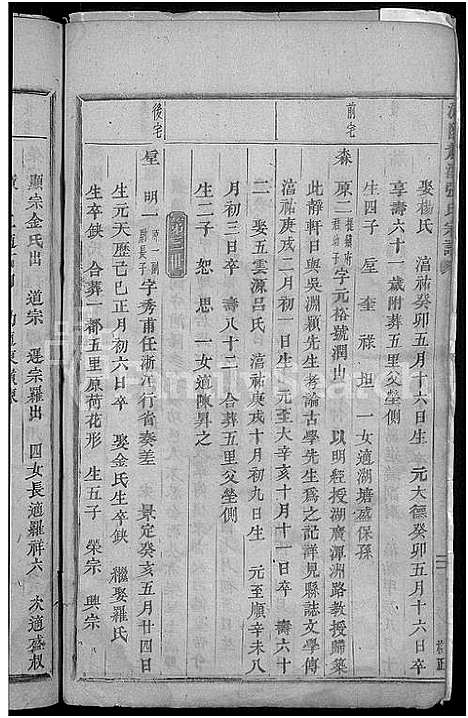 娶楊氏 淯祐癸卯五月十六日生 元大德癸卯五月十六日卒
享壽六十一歲附葬五里父塋側
生四子 垕 奎 祿 坦 一女適湖塘盛保孫
前宅
森 原二 字元裕號潤山 以明經授湖廣潭洲路教授歸築
此靜軒日與吳淵穎先生考論古學先生為之記詳見縣誌文學傳
淯祐庚戌二月初一日生 元至大辛亥十月十一日卒 壽六十
二 娶五雲源呂氏 淯祐庚戌十月初九日生 元至順辛未八
月初三日卒 壽八十二 合葬五里父塋側
生二子 恕 思 一女適陳昇之
後宅
垕 明一 字秀甫任浙江行省奏差 景定癸亥五月廿四日
生元天歷己巳正月初六日卒 娶金氏生卒缺 繼娶羅氏
生卒缺 合葬一都五里原荷花形 生五子 榮宗 興宗
顯宗金氏出 道宗 選宗羅出 四女長適羅祥六 次適盛叔